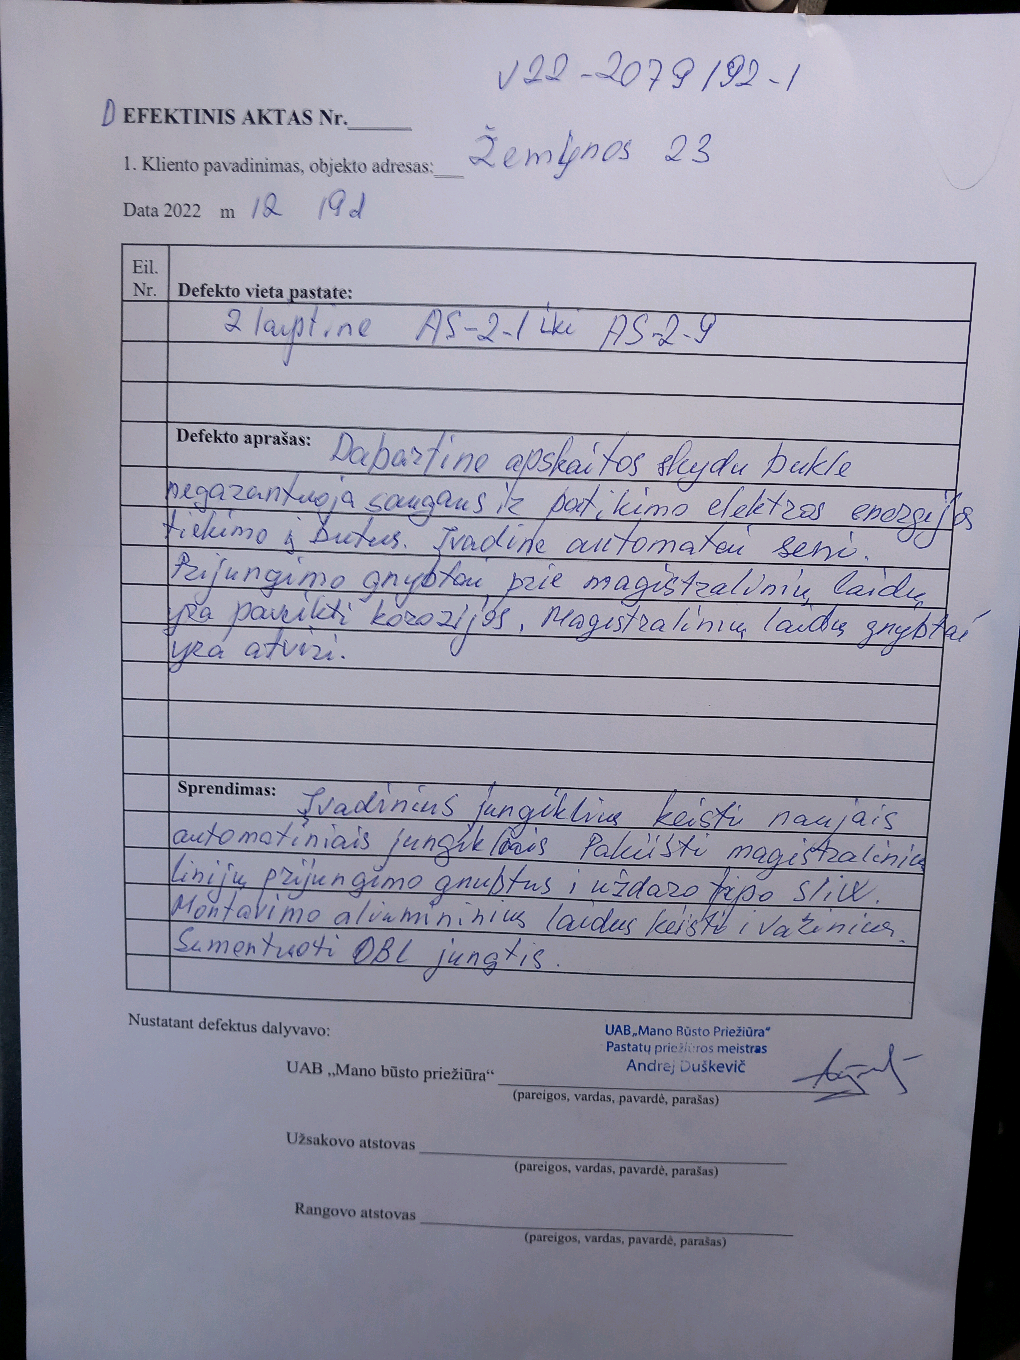 V22-2079/92-1
DEFEKTINIS AKTAS Nr.______
1. Kliento pavadinimas, objekto adresas:___ Žemynos 23
Data 2022 m 12 19d
Eil.
Nr. Defekto vieta pastate:
2 laiptine AS-2-1 iki AS-2-9
Defekto aprašas: Dabartine apskaitos skydu bukle
negarantuoja saugaus ir patikimo elektros energijos
tiekimo į butus. Įvadine automatai seni.
Prijungimo gnybtai prie magistralinių laidų
yra paveikti korozijos. Magistralinių laidų gnybtai
yra atviri.
Sprendimas: Įvadinius jungiklius keisti naujais
automatiniais jungikliais Pakeisti magistralinių
linijų prijungimo gnubtus i uždaro tipo
Montavimo aliumininius laidus keisti i varinius.
Sumontuoti OBL jungtis.
Nustatant defektus dalyvavo:
UAB „Mano Būsto Priežiūra"
Pastatų priežiūros meistras
Andrej Duškevič
UAB „Mano būsto priežiūra“ ______
(pareigos, vardas, pavardė, parašas)
Užsakovo atstovas ______
(pareigos, vardas, pavardė, parašas)
Rangovo atstovas ______
(pareigos, vardas, pavardė, parašas)